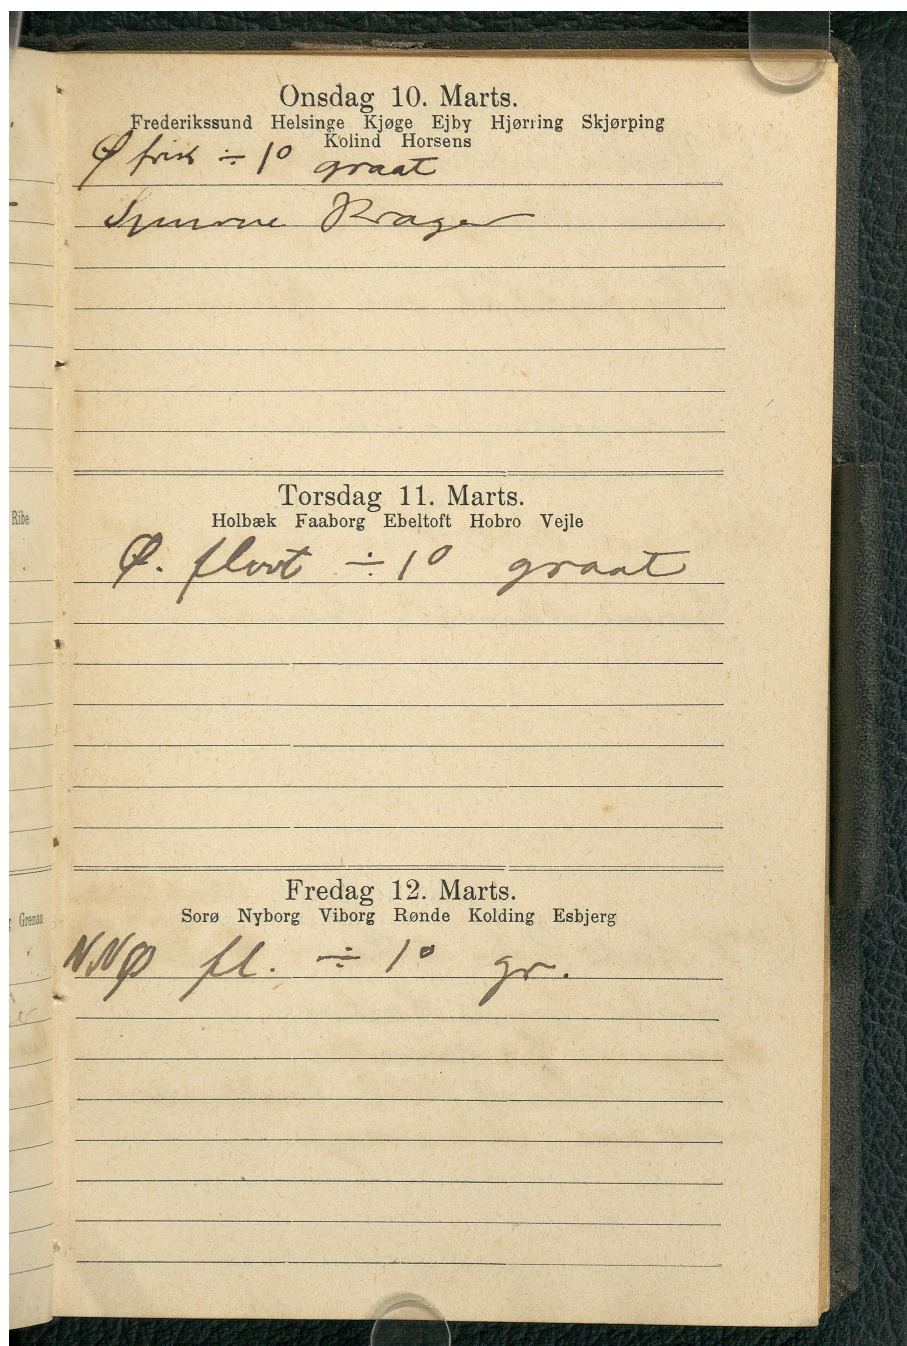 Onsdag 10. Marts.
Frederikssund Helsinge Kjøge Ejby Hjørring Skjørping
Kolind Horsens
Ø frisk ÷ 1° graat
Krager
Torsdag 11. Marts.
Holbæk Faaborg Ebeltoft Hobro Vejle
Ribe
Ø. flovt ÷ 1° graat
Fredag 12. Marts.
Sorø Nyborg Viborg Rønde Kolding Esbjerg
Grenaa
NNØ fl. ÷ 1° gr.